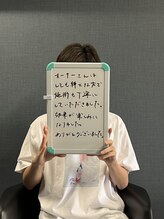 オーナーさんは
とても綺てな方で
施術も丁寧に
していただきました。
効果が楽しみに
なりました。
ありがとうございました。